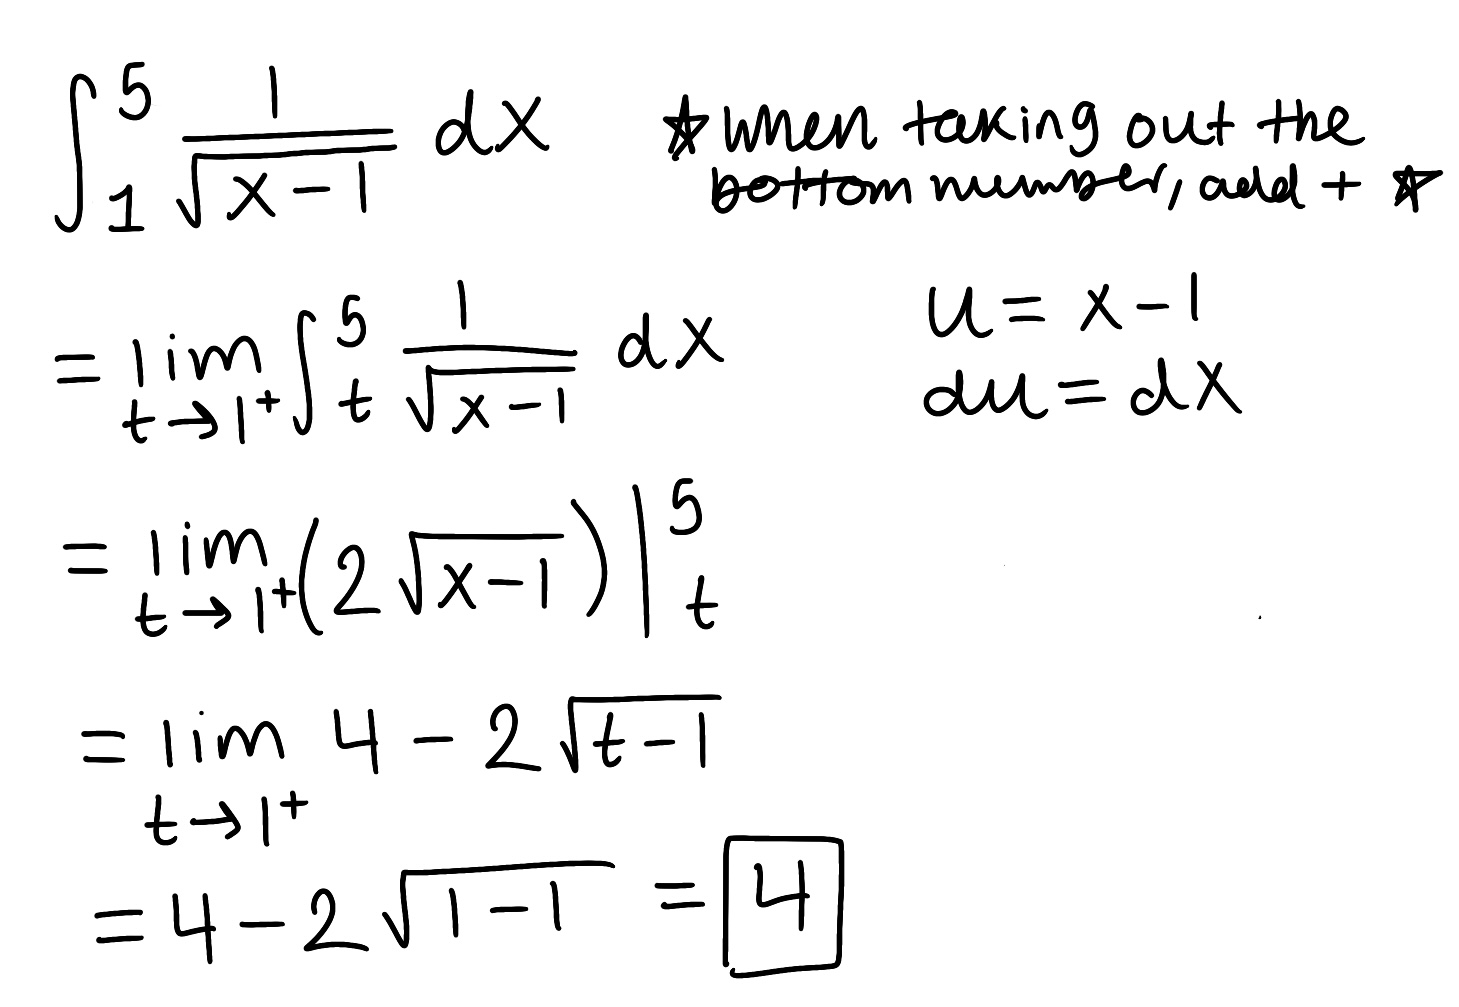 ∫₁⁵ 1/√(x-1) dx
☆ when taking out the
bottom number, add + ☆
= lim t→1⁺ ∫ₜ⁵ 1/√(x-1) dx
u = x-1
du = dx
= lim t→1⁺ (2√(x-1)) |ₜ⁵
= lim t→1⁺ 4 - 2√(t-1)
= 4 - 2√(1-1) = 4